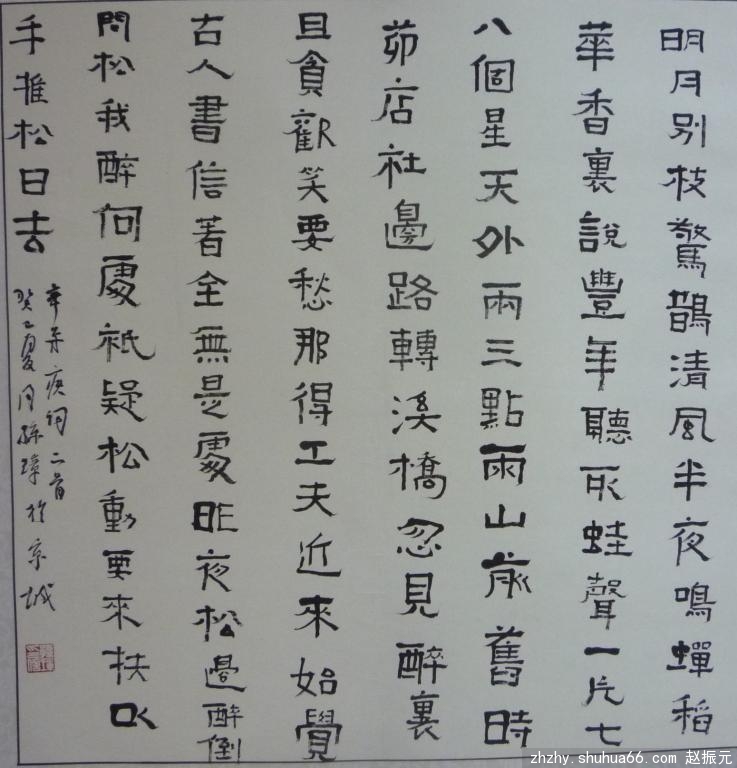 明月别枝驚鵲清風半夜鳴蟬稻
華香裏說豐年聽取蛙聲一片七
八個星天外兩三點雨山前舊時
茆店社邊路轉溪橋忽見醉裏
且貪歡笑要愁那得工夫近來始覺
古人書信著全無是處昨夜松邊醉倒
問松我醉何處祇疑松動要來扶以
手推松曰去
辛弃疾词二首
夏月於京城
zhzhy.shuhua66.com 赵振元